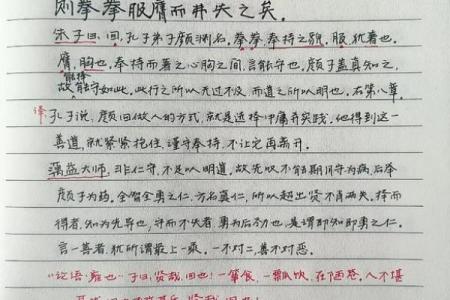 则拳拳服膺而弗失之矣。
朱子曰：回，孔子弟子颜渊名，拳拳，奉持之貌，服，犹着也。
膺，胸也，奉持而著之心胸之间，言能守也，颜子盖真知之，
故能择能守如此，此行之所以无过不及，而道之所以明也。右第八章
译：孔子说，颜回做人的方式，就是选择中庸而实践。他得到这一
善道，就紧紧抱住，谨守奉持，不让它再离开。
蕅益大师，非仁守，不足以明道，故先叹不能期月守为病，后举
颜子为药。全智全勇之仁，方名真仁，所以超出贤不肖两关。择而
得者，知为先导也，守而不失者，勇为后劲也，是谓即知即勇之仁。
言一善者，犹所谓最上一乘。一不对二，善不对恶。
"论语·雍也"子曰，贤哉，回也！一箪食，一瓢饮，在陋巷，人不堪